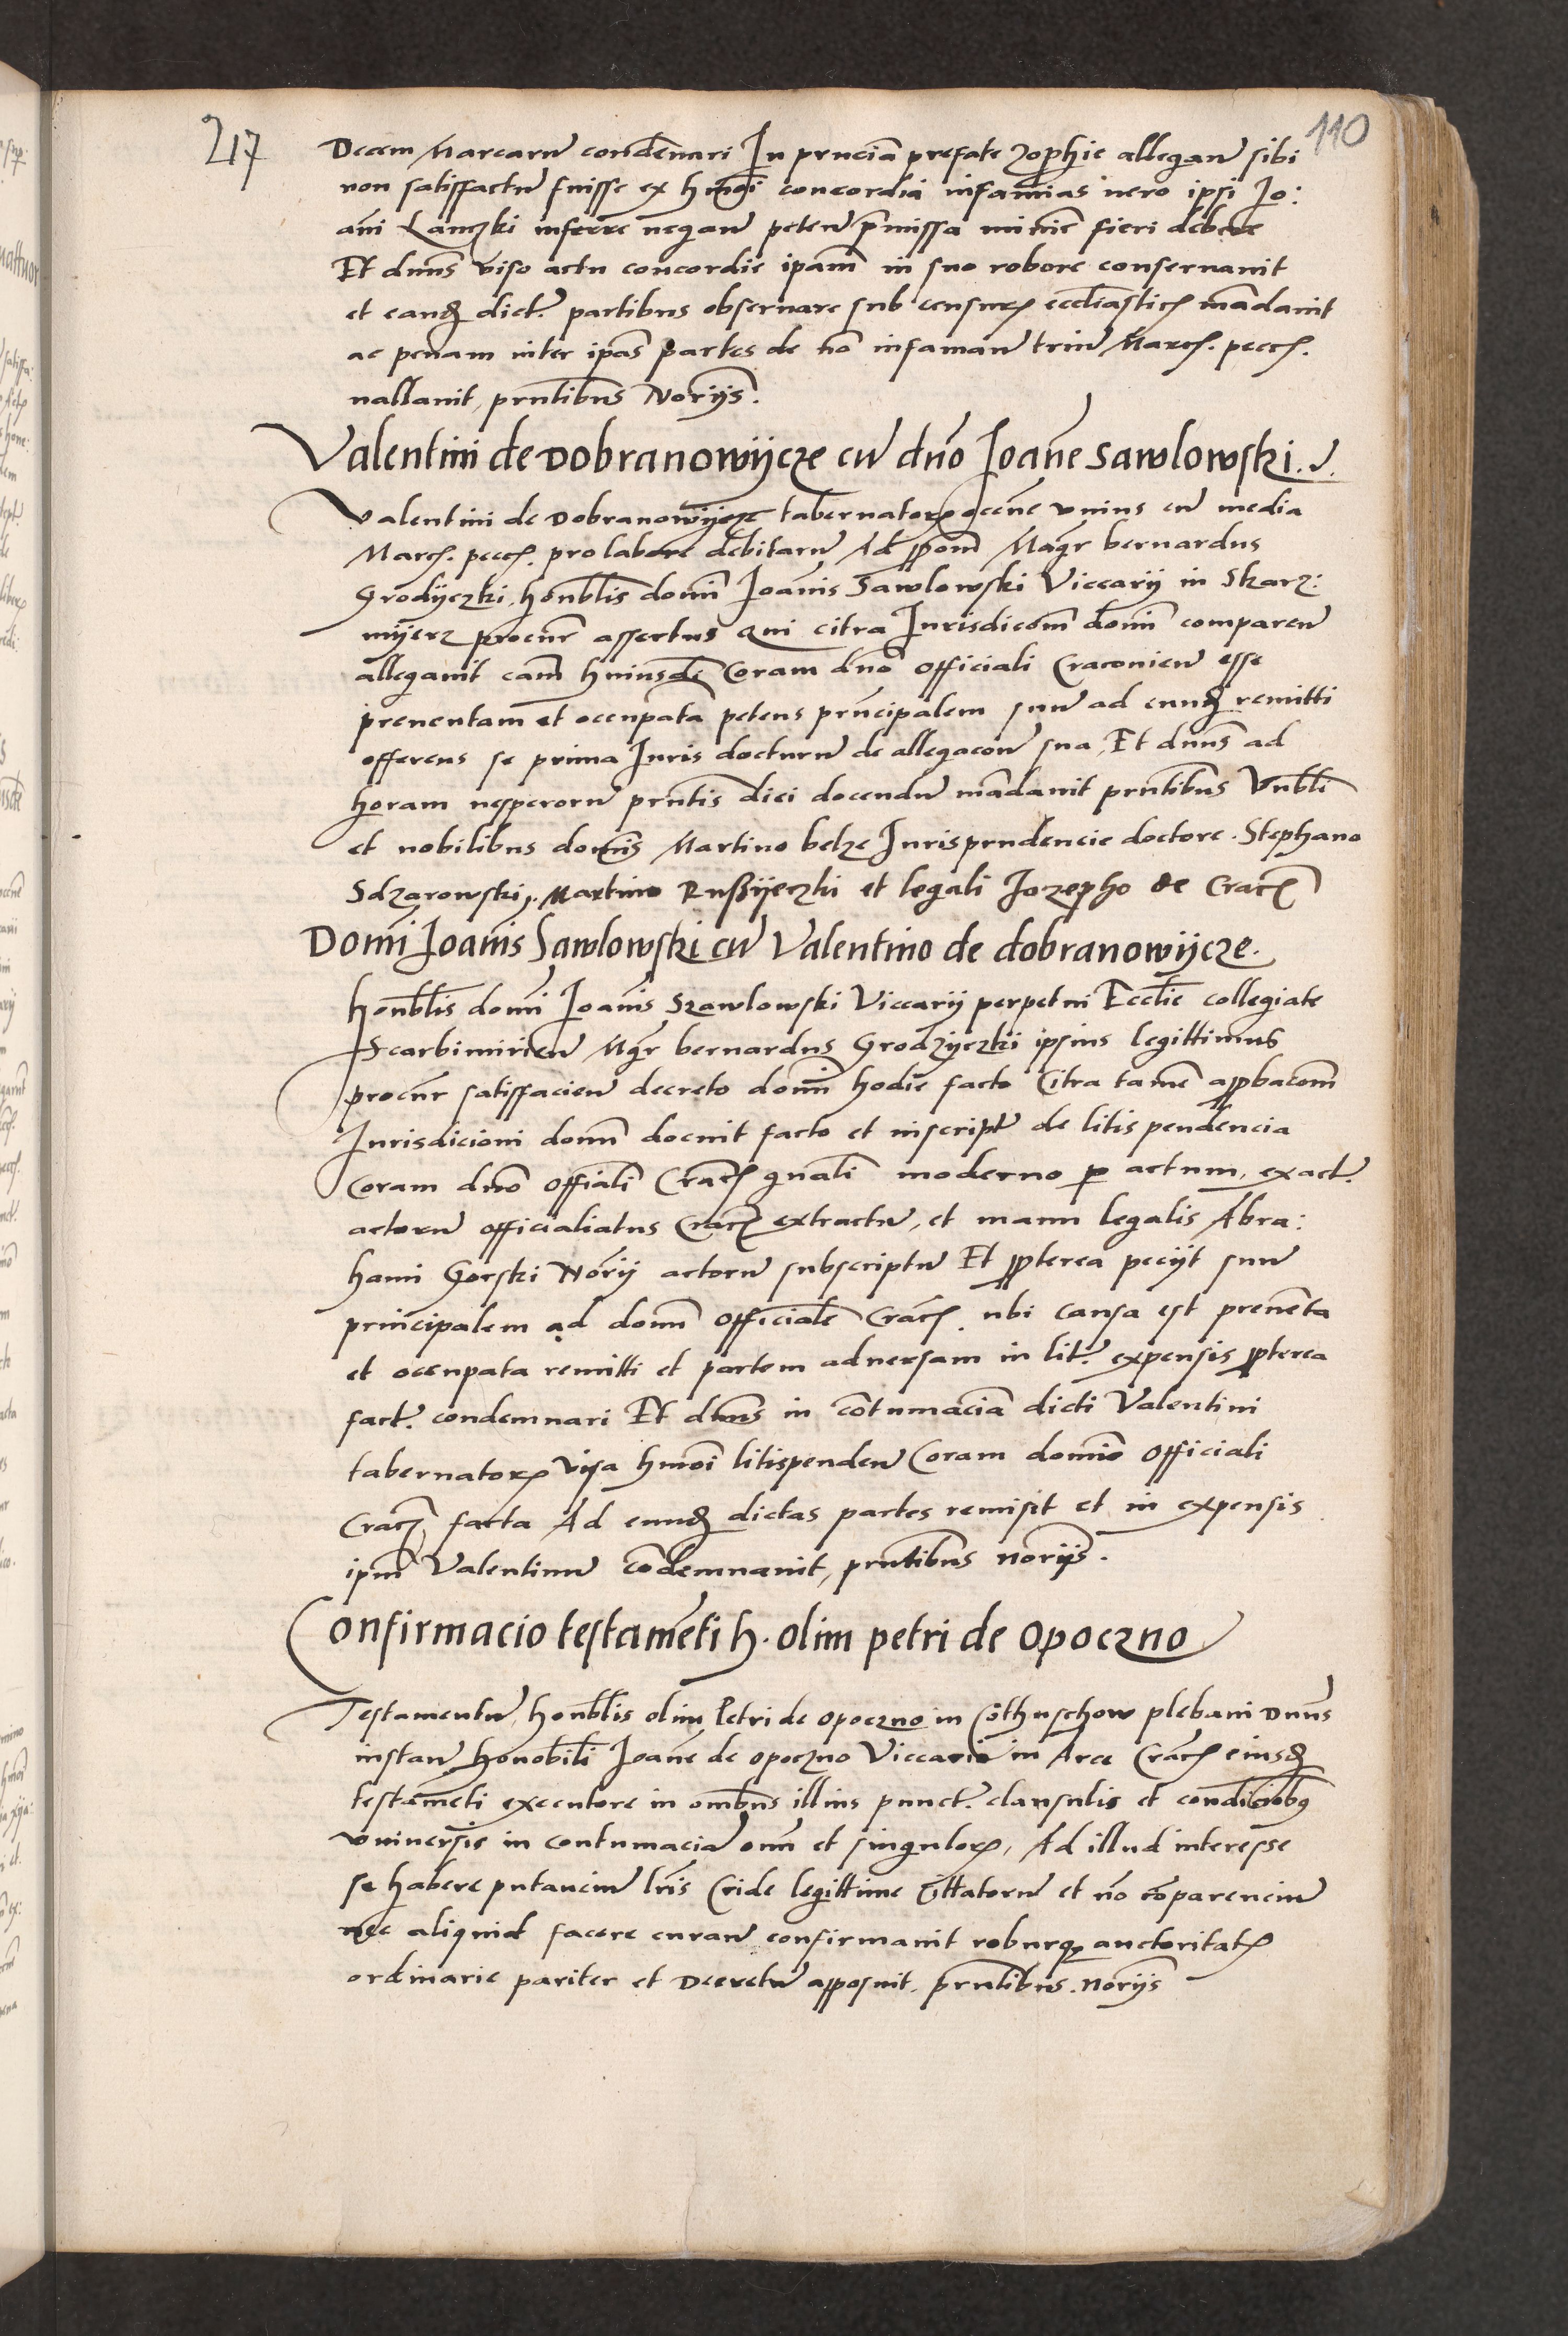 217
110
Decem Marcarū condēnari In pn̄ciā prefate Zophie allegan̄ sibi
non satisfactū fuisse ex hmōi concordia infamias vero ipsi Jo:
ani Lanczki inferre negan̄ peten̄ p̄missa minīe fieri debere
Et dnūs viso actu concordie ipām in suo robore conservavit
et eandē dict. partibus observare sub censurꝭ ecclīasticꝭ mādavit
ac penam inter ipās partes de nō infamān trīū Marcꝭ. peccꝭ.
vallavit, pn̄tibus Norijs.
Valentini de Dobranowijcze cū dn̄o Joāne Sawlowski.
Valentini de Dobranowijcze tabernatorꝭ occn̄e unius cū media
Marcꝭ. peccꝭ. pro labore debitarū Ad ꝓpōm Mag̃r bernardus
Grodijczki, honblīs domī Joānis Sawlowski Viccarij in Skarz:
mijerz procur̄ assertus qui citra Jurisdicōm domī comparen̄
allegavit cām huiusdē Coram dn̄o Officiali Cracovien̄ esse
preventam et occupatā petens prīncipalem suū ad eundē remitti
offerens se prima Juris docturū de allegacōn̄ sua, Et dnūs ad
horam vesperorū pn̄tis diei docendū mādavit pn̄tibus Vnblī
et nobilibus domīs Martino belze Jurisprudencie doctore. Stephano
Sdzarowski, Martino Rußijeczki et legali Jozepho de Cracꝭ
Domī Joānis Sawlowski cū Valentino de dobranowijcze.
Honblīs domī Joānis Szawlowski Viccarij perpetui Ecclīe collegiate
Scarbimirien̄ Mg̃r bernardus Grodzijczki ipsius legittimus
procur̄ satisfacien̄ decreto domī hodie facto Citra tamē apꝓbacōm
Jurisdicioni domī docuit facto et inscript̄ de litis pendencia
Coram dn̄o Offiālī Cracꝭ gn̄ali moderno ꝑ actum, ex act.
actorū officialiatus Cracꝭ extractū, et manu legalis Abra:
hami Gorski Norij actorū subscriptū Et ꝓpterea pecijt suū
principalem ad domī Officialē Cracꝭ. ubi causa est prevēta
et occupata remitti et partem adversam in lit. expensis ꝓpterea
fact. condemnari Et dnūs in cōtumaciā dicti Valentini
tabernatorꝭ visa hmōi litispenden̄ Coram domīo Officiali
Cracꝭ facta Ad eundē dictas partes remisit et in expensis
ipm̄ Valentinū cōdemnavit, pn̄tibus norijs.
Confirmacio testamēti h. olim petri de Opoczno
Testamentū, honblīs olim Petri de Opoczno in Cōthuschow plebani Dnūs
instan̄ honobili Joāne de Opoczno Viccario in Arce Cracꝭ eiusdē
testamēti executore in omībus illius punct. clausulis et condicōibꝰ
universis in contumaciā omī et singulorꝭ, Ad illud interesse
se habere putanciū lrīs Cride legittime Cittatorū et nō cōparenciū
nec aliquid facere curan̄ confirmavit roburqꝫ auctoritatꝭ
ordinarie pariter et Decretū apposuit. pn̄tibus. norijs